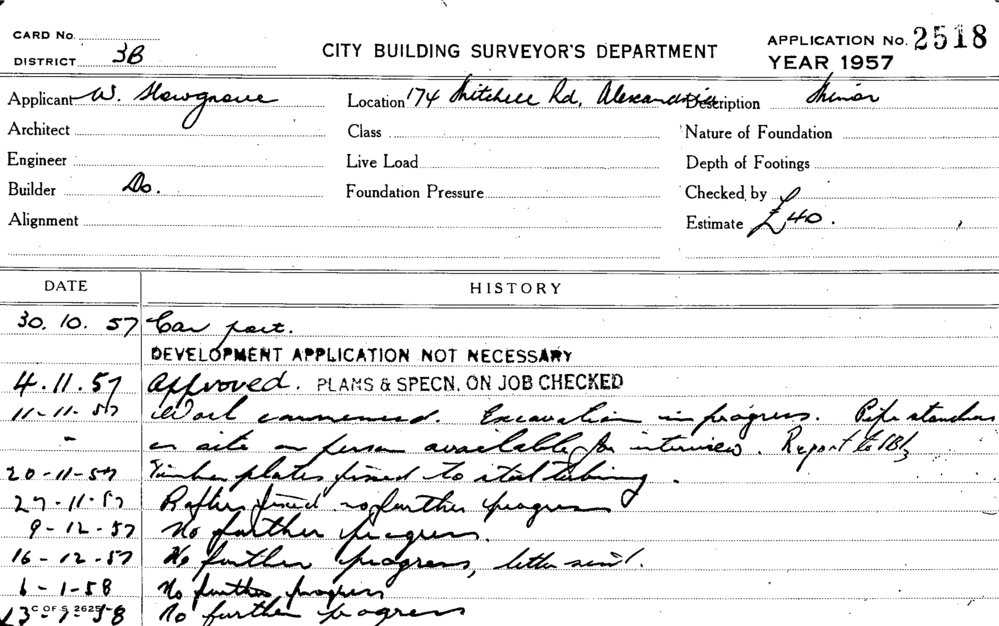 CARD No.
DISTRICT 3B
CITY BUILDING SURVEYOR'S DEPARTMENT
APPLICATION No. 2518
YEAR 1957
Applicant W.
Location 174 Mitchell Rd, Alexandria
Description Minor
Architect
Class
Nature of Foundation
Engineer
Live Load
Depth of Footings
Builder Do.
Foundation Pressure
Checked by
Alignment
Estimate £40.
DATE
HISTORY
30.10.57 Car port.
DEVELOPMENT APPLICATION NOT NECESSARY
4.11.57 Approved. PLANS & SPECN. ON JOB CHECKED
11-11-57 Work commenced. Excavation in progress. Pipe
on site no person available for interview. Report to
20-11-57 Timber plates fixed to steel tubing.
27-11-57 Rafters fixed no further progress
9-12-57 No further progress.
16-12-57 No further progress, letter sent.
6-1-58 No further progress
C OF S 2625
13-1-58 No further progress